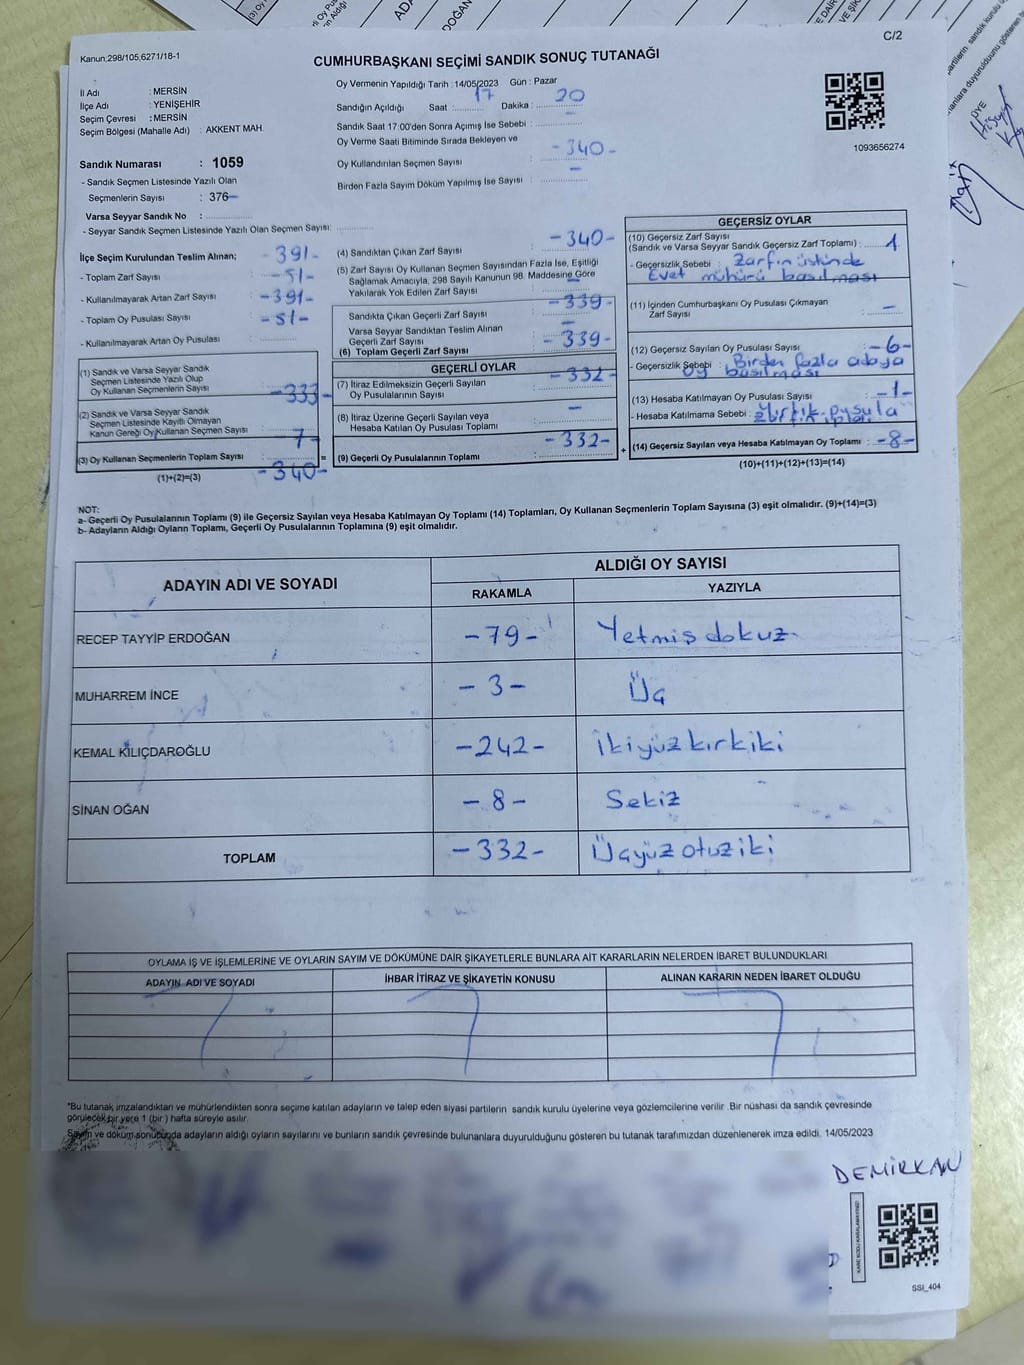 C/2
Kanun;298/105,6271/18-1
CUMHURBAŞKANI SEÇİMİ SANDIK SONUÇ TUTANAĞI
İl Adı : MERSİN
İlçe Adı : YENİŞEHİR
Seçim Çevresi : MERSİN
Seçim Bölgesi (Mahalle Adı) : AKKENT MAH.
Sandık Numarası : 1059
- Sandık Seçmen Listesinde Yazılı Olan
Seçmenlerin Sayısı : 376
Varsa Seyyar Sandık No :
- Seyyar Sandık Seçmen Listesinde Yazılı Olan Seçmen Sayısı:
Oy Vermenin Yapıldığı Tarih : 14/05/2023 Gün : Pazar
Sandığın Açıldığı Saat : 17 Dakika : 20
Sandık Saat 17:00'den Sonra Açımış İse Sebebi : –
Oy Verme Saati Bitiminde Sırada Bekleyen ve
Oy Kullandırılan Seçmen Sayısı -340-
Birden Fazla Sayım Döküm Yapılmış İse Sayısı : –
1093656274
İlçe Seçim Kurulundan Teslim Alınan;
- Toplam Zarf Sayısı -391-
- Kullanılmayarak Artan Zarf Sayısı -51-
- Toplam Oy Pusulası Sayısı -391-
- Kullanılmayarak Artan Oy Pusulası -51-
(1) Sandık ve Varsa Seyyar Sandık
Seçmen Listesinde Yazılı Olup
Oy Kullanan Seçmenlerin Sayısı -333-
(2) Sandık ve Varsa Seyyar Sandık
Seçmen Listesinde Kayıtlı Olmayan
Kanun Gereği Oy Kullanan Seçmen Sayısı -7-
(3) Oy Kullanan Seçmenlerin Toplam Sayısı -340-
(1)+(2)=(3)
(4) Sandıktan Çıkan Zarf Sayısı -340-
(5) Zarf Sayısı Oy Kullanan Seçmen Sayısından Fazla İse, Eşitliği
Sağlamak Amacıyla, 298 Sayılı Kanunun 98. Maddesine Göre
Yakılarak Yok Edilen Zarf Sayısı –
Sandıkta Çıkan Geçerli Zarf Sayısı -339-
Varsa Seyyar Sandıktan Teslim Alınan
Geçerli Zarf Sayısı –
(6) Toplam Geçerli Zarf Sayısı -339-
GEÇERLİ OYLAR
(7) İtiraz Edilmeksizin Geçerli Sayılan
Oy Pusulalarının Sayısı -332-
(8) İtiraz Üzerine Geçerli Sayılan veya
Hesaba Katılan Oy Pusulası Toplamı –
(9) Geçerli Oy Pusulalarının Toplamı -332-
GEÇERSİZ OYLAR
(10) Geçersiz Zarf Sayısı
(Sandık ve Varsa Seyyar Sandık Geçersiz Zarf Toplamı) : 1
- Geçersizlik Sebebi : Zarfın üstünde
Evet mühürü basılması
(11) İçinden Cumhurbaşkanı Oy Pusulası Çıkmayan
Zarf Sayısı : –
(12) Geçersiz Sayılan Oy Pusulası Sayısı -6-
- Geçersizlik Sebebi : Birden fazla adaya
oy basılması
(13) Hesaba Katılmayan Oy Pusulası Sayısı -1-
- Hesaba Katılmama Sebebi : Yırtık pusula
(14) Geçersiz Sayılan veya Hesaba Katılmayan Oy Toplamı : -8-
(10)+(11)+(12)+(13)=(14)
NOT:
a- Geçerli Oy Pusulalarının Toplamı (9) ile Geçersiz Sayılan veya Hesaba Katılmayan Oy Toplamı (14) Toplamları, Oy Kullanan Seçmenlerin Toplam Sayısına (3) eşit olmalıdır. (9)+(14)=(3)
b- Adayların Aldığı Oyların Toplamı, Geçerli Oy Pusulalarının Toplamına (9) eşit olmalıdır.
ADAYIN ADI VE SOYADI
ALDIĞI OY SAYISI
RAKAMLA YAZIYLA
RECEP TAYYİP ERDOĞAN -79- Yetmiş dokuz
MUHARREM İNCE -3- Üç
KEMAL KILIÇDAROĞLU -242- İkiyüzkırkiki
SİNAN OĞAN -8- Sekiz
TOPLAM -332- Üçyüz otuz iki
OYLAMA İŞ VE İŞLEMLERİNE VE OYLARIN SAYIM VE DÖKÜMÜNE DAİR ŞİKAYETLERLE BUNLARA AİT KARARLARIN NELERDEN İBARET BULUNDUKLARI
ADAYIN ADI VE SOYADI İHBAR İTİRAZ VE ŞİKAYETİN KONUSU ALINAN KARARIN NEDEN İBARET OLDUĞU
*Bu tutanak imzalandıktan ve mühürlendikten sonra seçime katılan adayların ve talep eden siyasi partilerin sandık kurulu üyelerine veya gözlemcilerine verilir. Bir nüshası da sandık çevresinde
görülecek bir yere 1 (bir ) hafta süreyle asılır.
Sayım ve döküm sonucunda adayların aldığı oyların sayılarını ve bunların sandık çevresinde bulunanlara duyurulduğunu gösteren bu tutanak tarafımızdan düzenlenerek imza edildi. 14/05/2023
DEMİRKAN
SSI_404